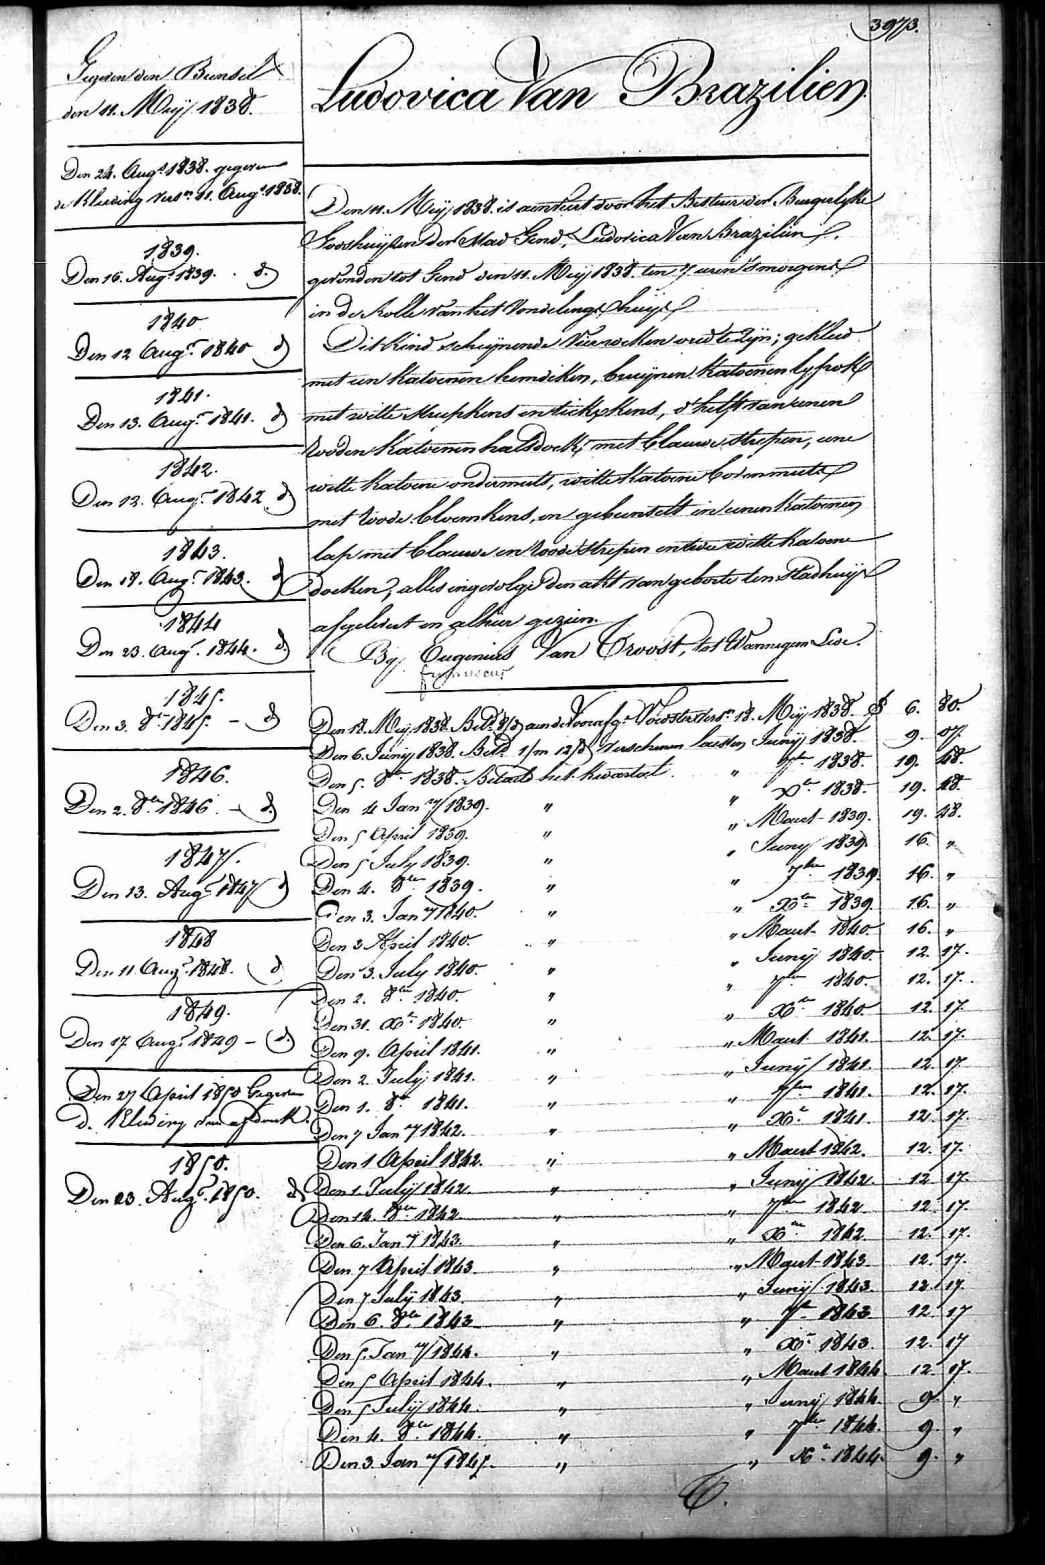 3973.
Gegeven den Bunsel
den 11. Meij 1838.
Den 24. Augt 1838. gegeven
de Kleeding verst. 11. Augt 1838.
1839.
Den 16. Augt 1839. d.
1840
Den 12 Augt 1840 d
1841.
Den 13. Augt 1841. d
1842.
Den 12. Augt 1842 d
1843.
Den 18. Augt 1843. d
1844
Den 23. Augt 1844. d.
1845.
Den 3. 8r 1845. - d
1846.
Den 2. 8bre 1846 - d.
1847.
Den 13. Augt 1847 d
1848
Den 11 Augt 1848. d
1849.
Den 17 Augt 1849 - d.
Den 27 April 1850 Gegeven
d. Kleeding van
1850.
Den 23. Augt 1850. d
Ludovica Van Brazilien
Den 11. Meij 1838. is aenveert door het Bestuer der Burgerlyke
Godshuijsen der Stad Gend, Ludovica Van Brazilien
gevonden tot Gend den 11. Meij 1838. ten 7 uren 's morgens
in de Rolle van het Vondelingshuijs
Dit Kind schijnende Vier weken oud te zijn; gekleed
met een Katoenen hemdeken, bruijnen Katoenen lyfrok
met witte streepkens en tickskens, d'helft van eenen
Rooden Katoenen halsdoek, met blauwe strepen, eene
witte Katoene ondermuts, witte Katoene bovenmuts
met Roode bloemkens, en gebunselt in eenen Katoenen
lap met blauwe en Roode strepen en twee witte Katoene
doeken, alles ingevolge den akt van geboorte ten Stadhuijse
afgelevert en alhier gezien.
Bij Eugenius Van Troost, tot Wannegem Lede.
franciscus
Den 18. Meij 1838. Betd aen de Voorafge Voedster verst. 18. Meij 1838. 6. 80.
Den 6. Junij 1838. Betd 1/m 12/d verschenen lasten Junij 1838. 9. 07.
Den 5. 8bre 1838. Betaelt het kwartael " 7bre 1838. 19. 48.
Den 4 Jany 1839. " " Xbre 1838. 19. 48.
Den 5 April 1839. " " Maert 1839. 19. 48.
Den 5 July 1839. " " Junij 1839. 16. "
Den 4. 8bre 1839. " " 7bre 1839. 16. "
Den 3. Jany 1840. " " Xbre 1839. 16. "
Den 3 April 1840. " " Maert 1840 16. "
Den 3. July 1840. " " Junij 1840. 12. 17.
Den 2. 8bre 1840. " " 7bre 1840. 12. 17.
Den 31. Xbre 1840. " " Xbre 1840. 12. 17.
Den 9. April 1841. " " Maert 1841. 12. 17.
Den 2. Julij 1841. " " Junij 1841. 12. 17.
Den 1. 8bre 1841. " " 7bre 1841. 12. 17.
Den 7 Jany 1842. " " Xbre 1841. 12. 17.
Den 1 April 1842. " " Maert 1842. 12. 17.
Den 1. Julij 1842. " " Junij 1842. 12 17.
Den 14. 8bre 1842 " " 7bre 1842. 12. 17.
Den 6. Jany 1843. " " Xbre 1842. 12. 17.
Den 7 April 1843. " " Maert 1843. 12. 17.
Den 7 Julij 1843. " " Junij 1843. 12. 17.
Den 6. 8bre 1843 " " 7bre 1843 12 17
Den 5. Jany 1844. " " Xbre 1843. 12. 17
Den 5 April 1844. " " Maert 1844. 12. 17.
Den 5 Julij 1844. " " Junij 1844. 9. "
Den 4. 8bre 1844. " " 7bre 1844. 9. "
Den 3. Jany 1845. " " Xbre 1844. 9. "